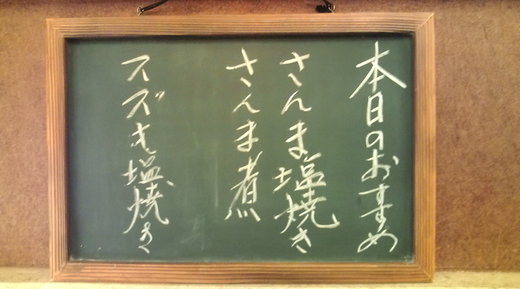 本日のおすすめ
さんま塩焼き
さんま煮
スズキ塩焼き